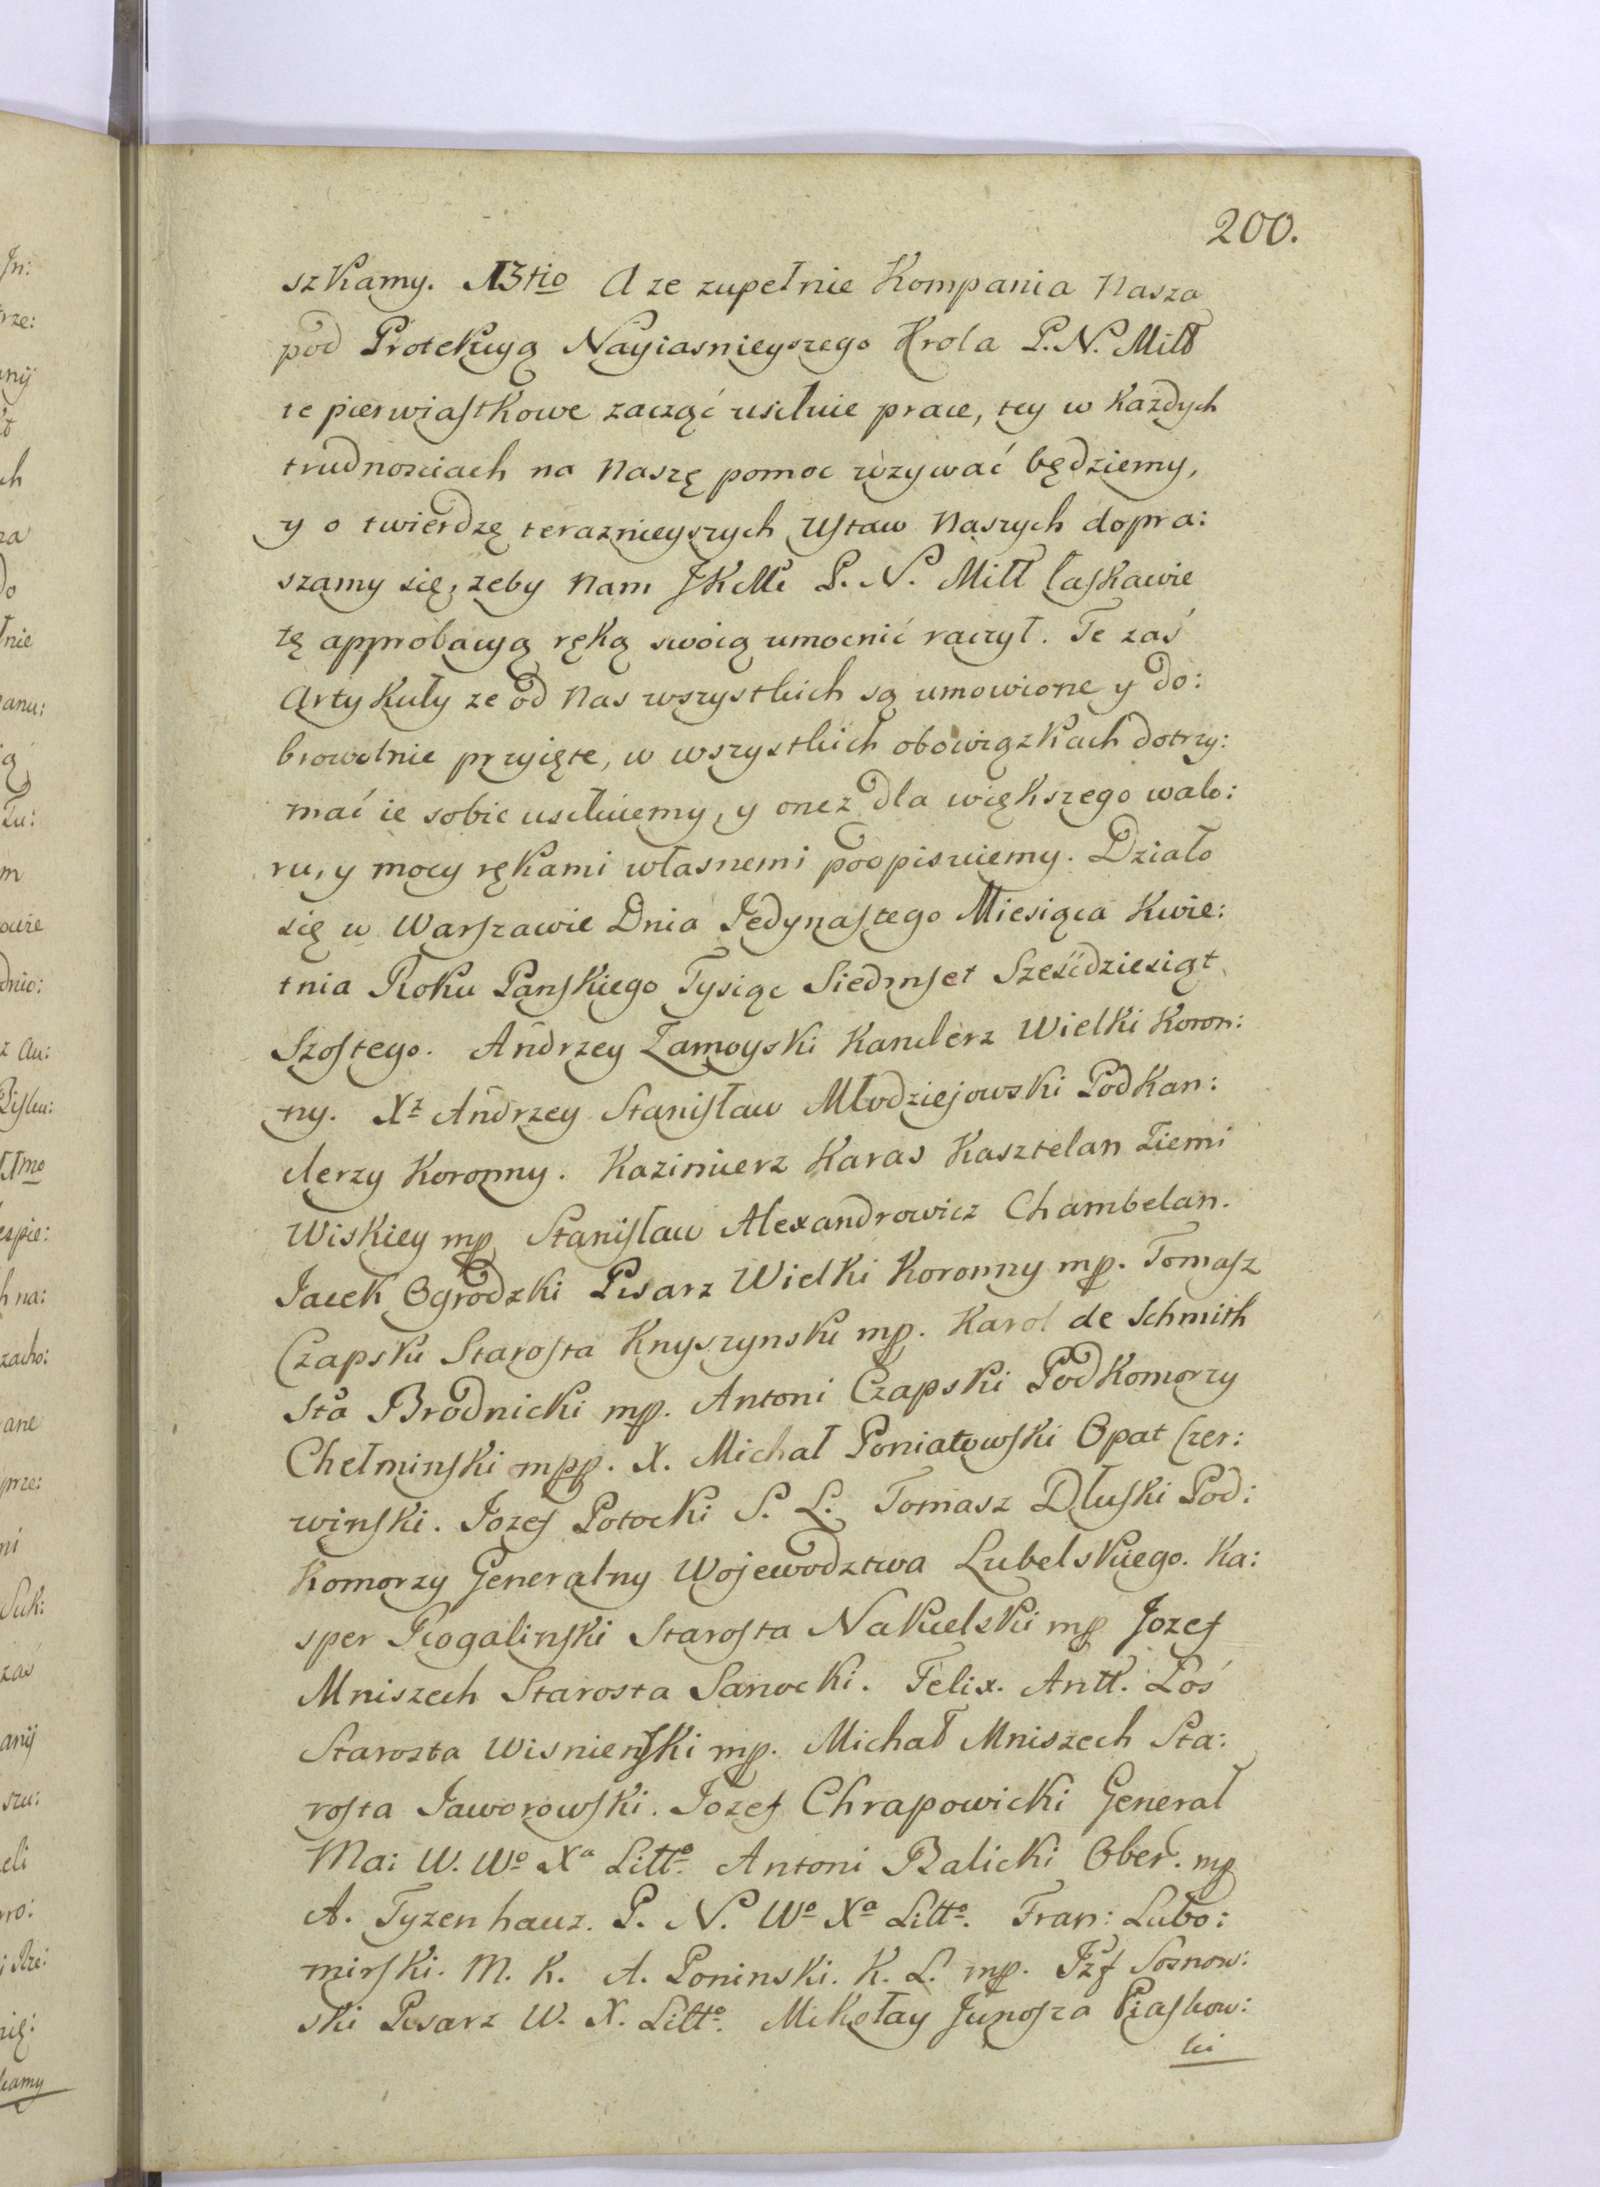 200.
szkamy. 13tio A ze zupełnie Kompania Nasza
pod Protekcyą Nayiasnieyszego Krola P. N. Miłł
te pierwiastkowe zacząć usiłuie prace, tey w każdych
trudnosciach na Naszę pomoc wzywać będziemy,
y o twierdzę teraznieyszych Ustaw Naszych dopra:
szamy się, zeby Nam JKMć P. N. Miłł łaskawie
tę approbacyą ręką swoią umocnić raczył. Te zaś
Artykuły ze od Nas wszystkich są umowione y do:
browolnie przyięte, w wszystkich obowiązkach dotrzy:
mać ie sobie usiłuiemy, y onez dla większego walo:
ru, y mocy rękami własnemi podpisuiemy. Działo
się w Warszawie Dnia Jedynastego Miesiąca Kwie:
tnia Roku Panskiego Tysiąc Siedmset Sześćdziesiąt
Szostego. Andrzey Zamoyski Kanclerz Wielki Koron:
ny. Xz Andrzey Stanisław Młodziejowski PodKan:
clerzy Koronny. Kazimierz Karas Kasztelan Ziemi
Wiskiey mp Stanisław Alexandrowicz Chambelan.
Jacek Ogrodzki Pisarz Wielki Koronny mp. Tomasz
Czapski Starosta Knyszynski mp. Karol de Schmith
Sta Brodnicki mp. Antoni Czapski PodKomorzy
Chełminski mpp. X. Michał Poniatowski Opat Czer:
winski. Jozef Potocki S. L. Tomasz Dłuski Pod:
Komorzy Generalny Wojewodztwa Lubelskiego. Ka:
sper Rogalinski Starosta Nakielski mp Jozef
Mniszech Starosta Sanocki. Felix. Antt. Łoś
Starosta Wisnienski mp. Michał Mniszech Sta:
rosta Jaworowski. Jozef Chrapowicki Generał
Mai W. Wo Xa Litto. Antoni Balicki Ober. mp
A. Tyzenhauz. P. N. Wo Xa Litto. Fran: Lubo:
mirski. M. K. A. Poninski. K. L. mp. Jzf Sosnow:
ski Pisarz W. X. Litto. Mikołay Junosza Piaskow:
ki